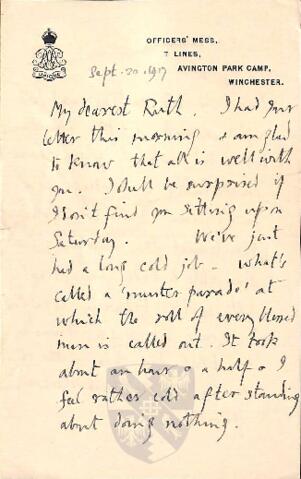 OFFICERS' MESS,
7 LINES,
AVINGTON PARK CAMP,
WINCHESTER.
Sept. 20. 1917
My dearest Ruth. I had your
letter this morning & am glad
to know that all is well with
you. I shall be surprised if
I don't find you sitting up on
Saturday. We've just
had a long cold job – what's
called a 'muster parade' at
which the roll of every blessed
man is called out. It took
about an hour & a half & I
feel rather cold after standing
about doing nothing.